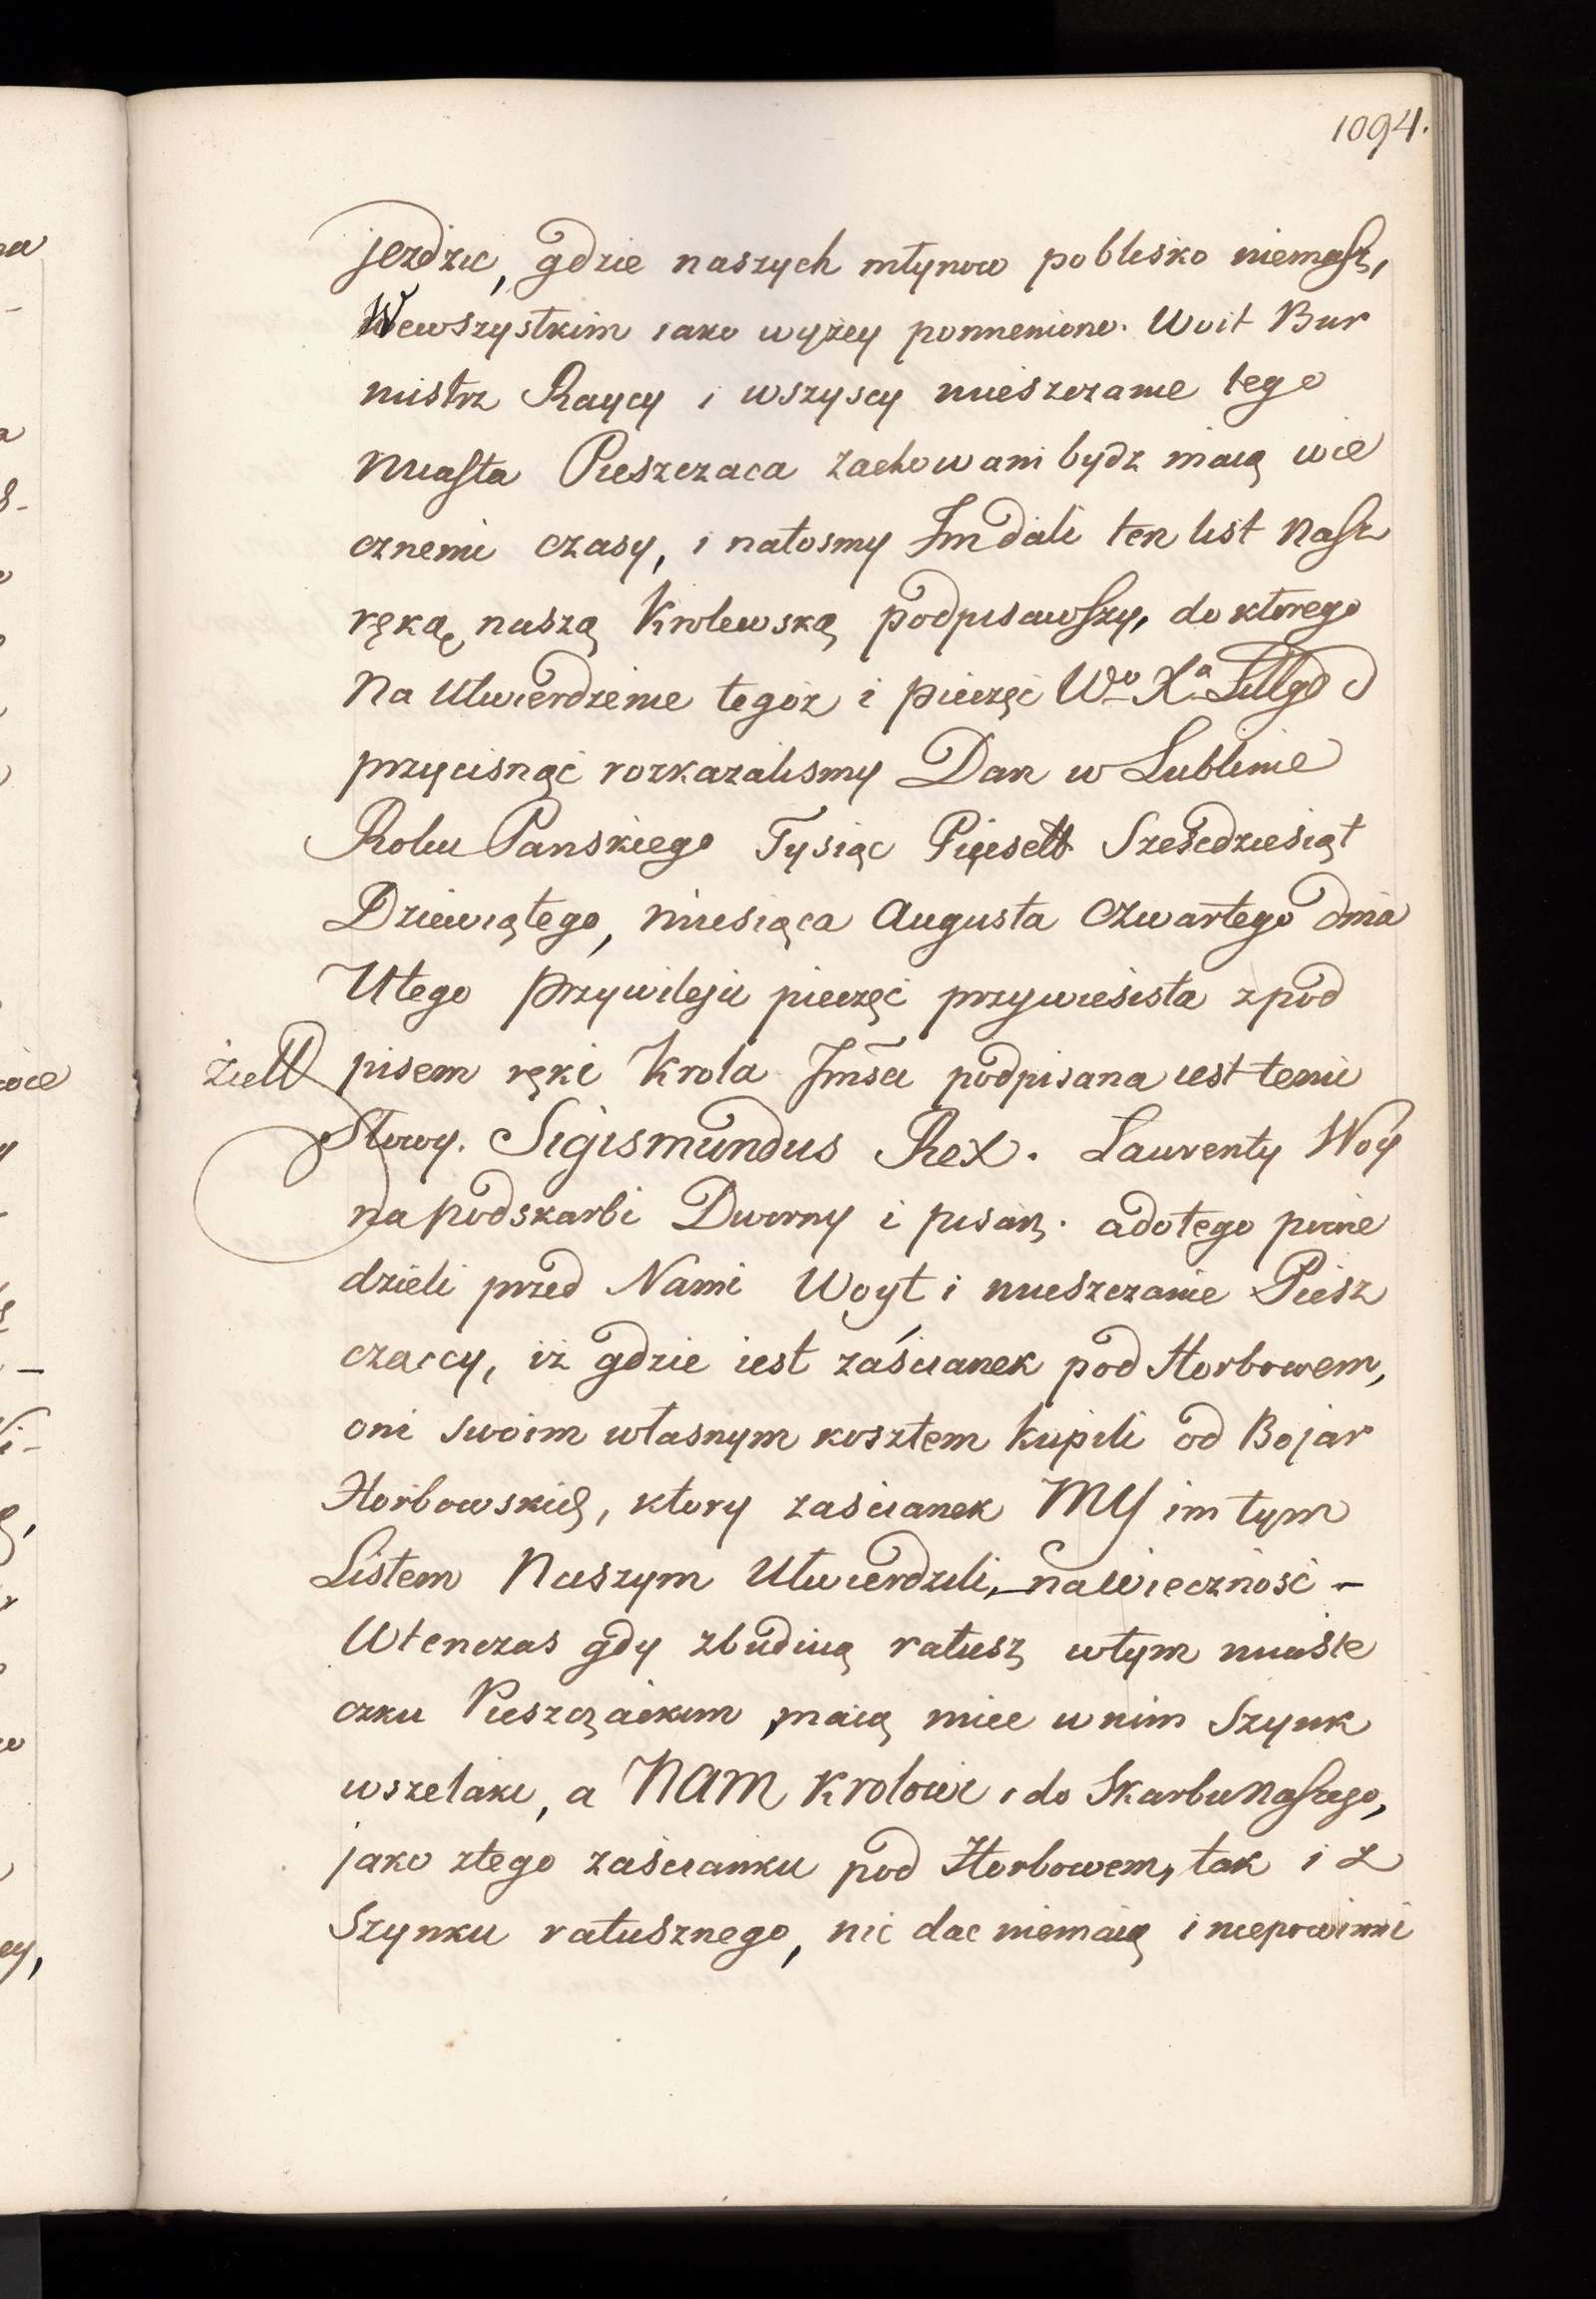 1094.
jezdzic, gdzie naszych młynow poblisko niemasz,
Wewszystkim iako wyżey pomnieniono. Woit Bur
mistrz Raycy i wszyscy mieszczanie tego
Miasta Pieszczaca zachowani bydz maią wie
cznemi czasy, i natosmy Im dali ten list Nasz
ręką naszą Krolewską podpisawszy, do ktorego
Na Utwierdzenie tegoż i pieczęć Wo Xa Littgo
przycisnąć rozkazalismy Dan w Lublinie
Roku Panskiego Tysiąc Pięćsett Sześcdziesiąt
Dziewiątego, miesiąca Augusta Czwartego dnia
Utego Przywileju pieczęć przywiesista z pod
żiełł pisem ręki Krola Jmsci podpisana iest temi
słowy. Sigismundus Rex. Laurenty Woy
na podskarbi Dworny i pisarz. adotego powie
dzieli przed Nami Woyt i mieszczanie Piesz
czaccy, iż gdzie iest zaścianek pod Horbowem,
oni swoim własnym kosztem kupili od Bojar
Horbowskich, ktory zascianek MY im tym
Listem Naszym Utwierdzili, na wieczność –
Wtenczas gdy zbuduią ratusz wtym miaste
czku Pieszczackim maią miec w nim Szynk
wszelaki, a NAM Krolowi i do Skarbu Naszego,
jako ztego zaścianku pod Horbowem, tak i z
Szynku ratusznego, nic dac niemaią i niepowinni